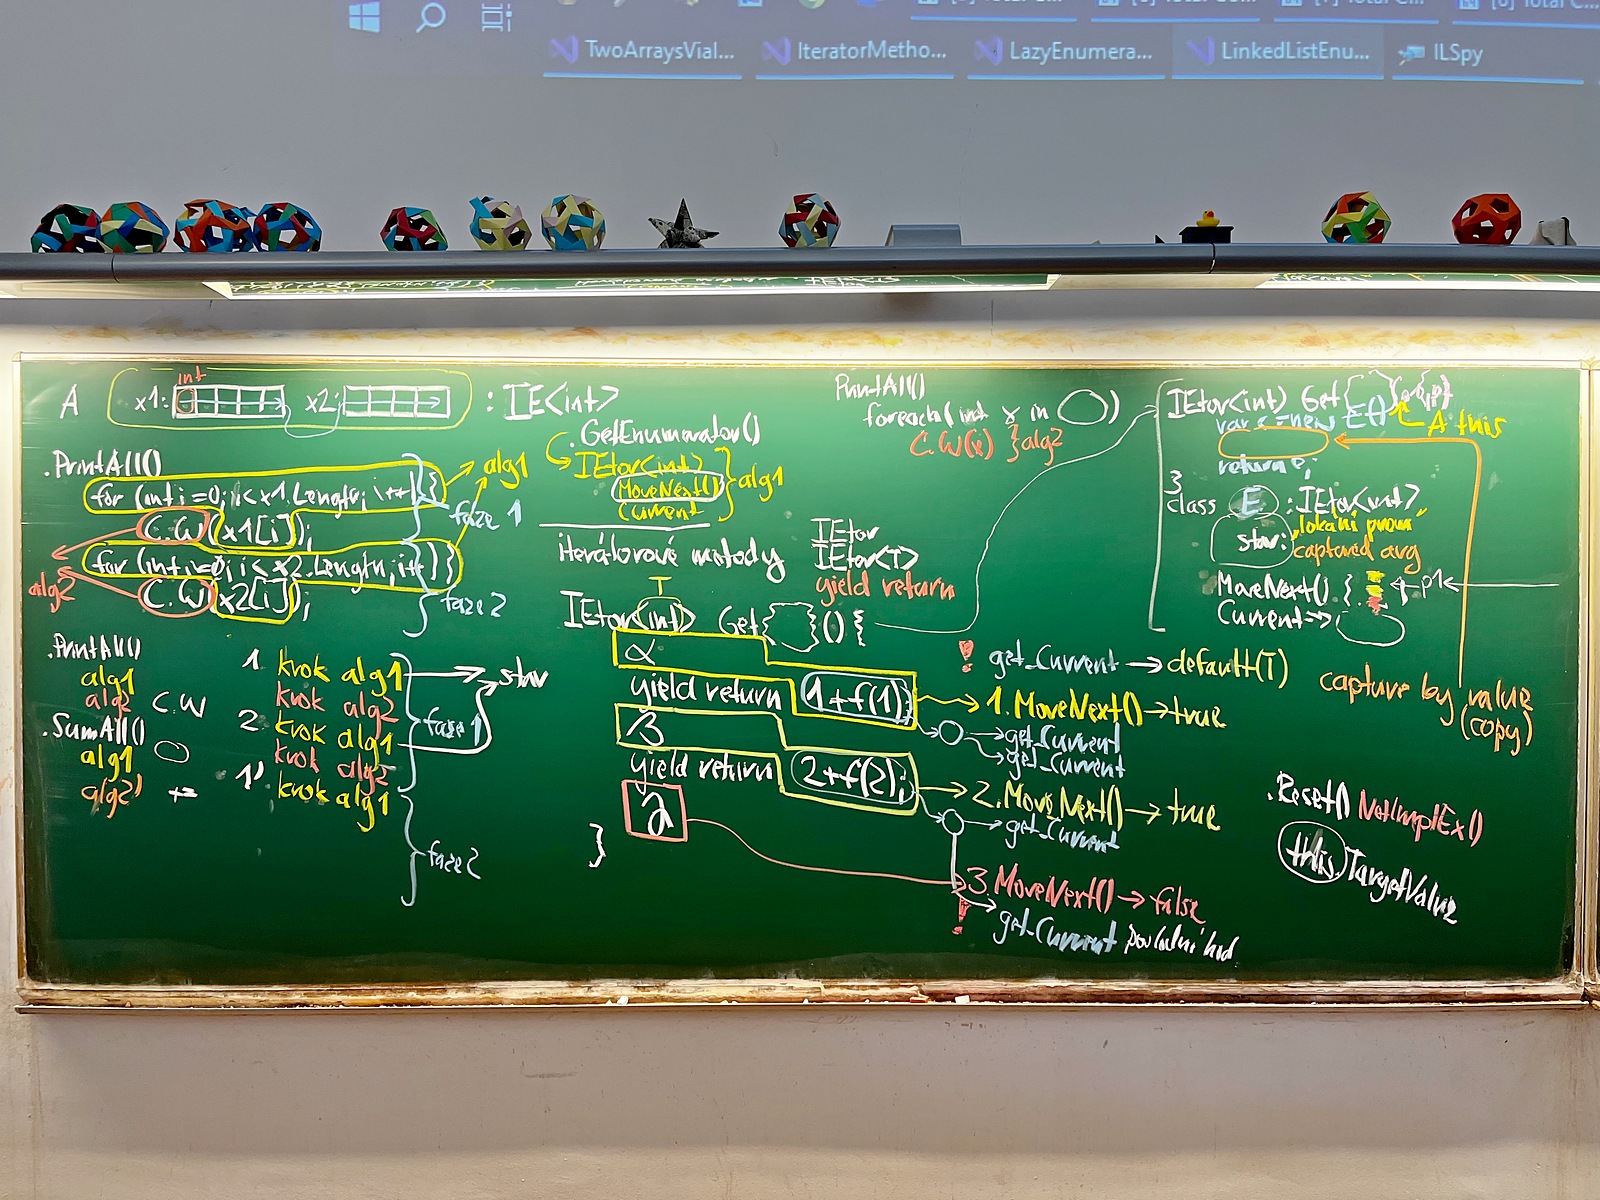 TwoArraysVial... IteratorMetho... LazyEnumera... LinkedListEnu... ILSpy
A
int
x1: x2: : IE<int>
.GetEnumerator()
IEtor<int>
MoveNext()
Current
alg1
.PrintAll()
for (int i=0; i<x1.Length; i++)
C.W(x1[i]);
for (int i=0; i<x2.Length; i++)
C.W(x2[i]);
alg1
faze 1
alg2
faze 2
.PrintAll()
alg1
alg2 C.W
.SumAll()
alg1
alg2' +=
1. krok alg1
krok alg2
2. krok alg1
krok alg2
1' krok alg1
stav
faze 1
faze 2
iterátorové metody
IEtor
IEtor<T>
yield return
T
IEtor<int> Get{ }() {
α
yield return 1+f(1);
β
yield return 2+f(2);
}
PrintAll()
foreach (int x in )
C.W(x) } alg2
! get_Current → default(T)
1. MoveNext() → true
get_Current
get_Current
2. MoveNext() → true
get_Current
3. MoveNext() → false
!
get_Current
IEtor<int> Get{ }
var e = new E()
A this
return e;
}
class E : IEtor<int>
stav:
captured arg
MoveNext() { p1
Current =>
capture by value
(copy)
.Reset() NotImplEx()
this.TargetValue